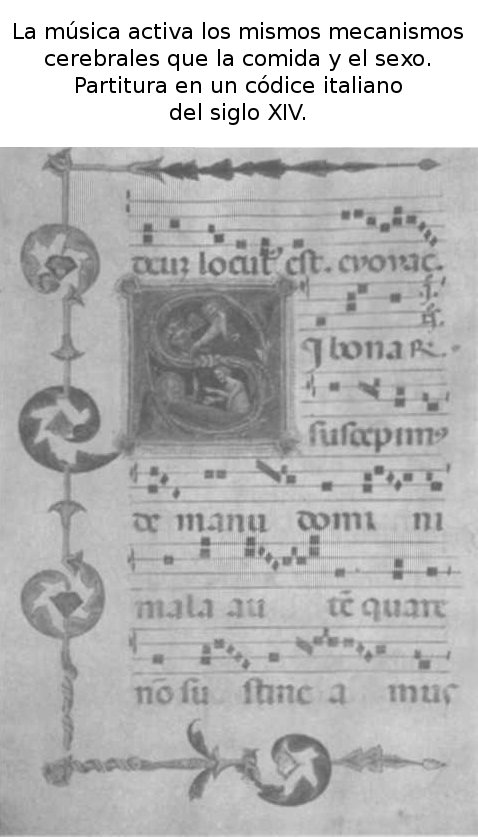 La música activa los mismos mecanismos
cerebrales que la comida y el sexo.
Partitura en un códice italiano
del siglo XIV.
locut' est. evovae.
I bona
suscepim9
de manu domi ni
mala au tē quare
nō su stine a mus